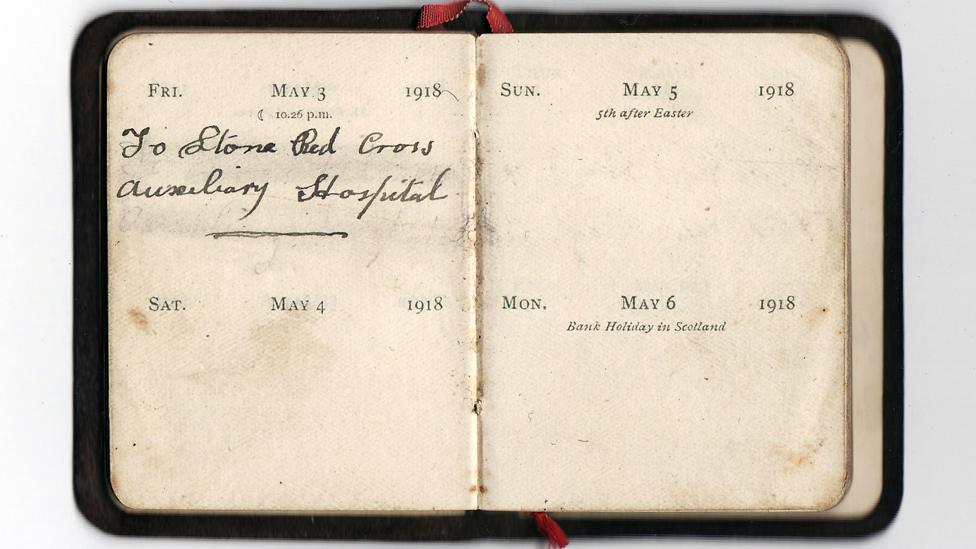 FRI. MAY 3 1918
☾ 10.26 p.m.
To Stone Red Cross
Auxiliary Hospital
SAT. MAY 4 1918
SUN. MAY 5 1918
5th after Easter
MON. MAY 6 1918
Bank Holiday in Scotland